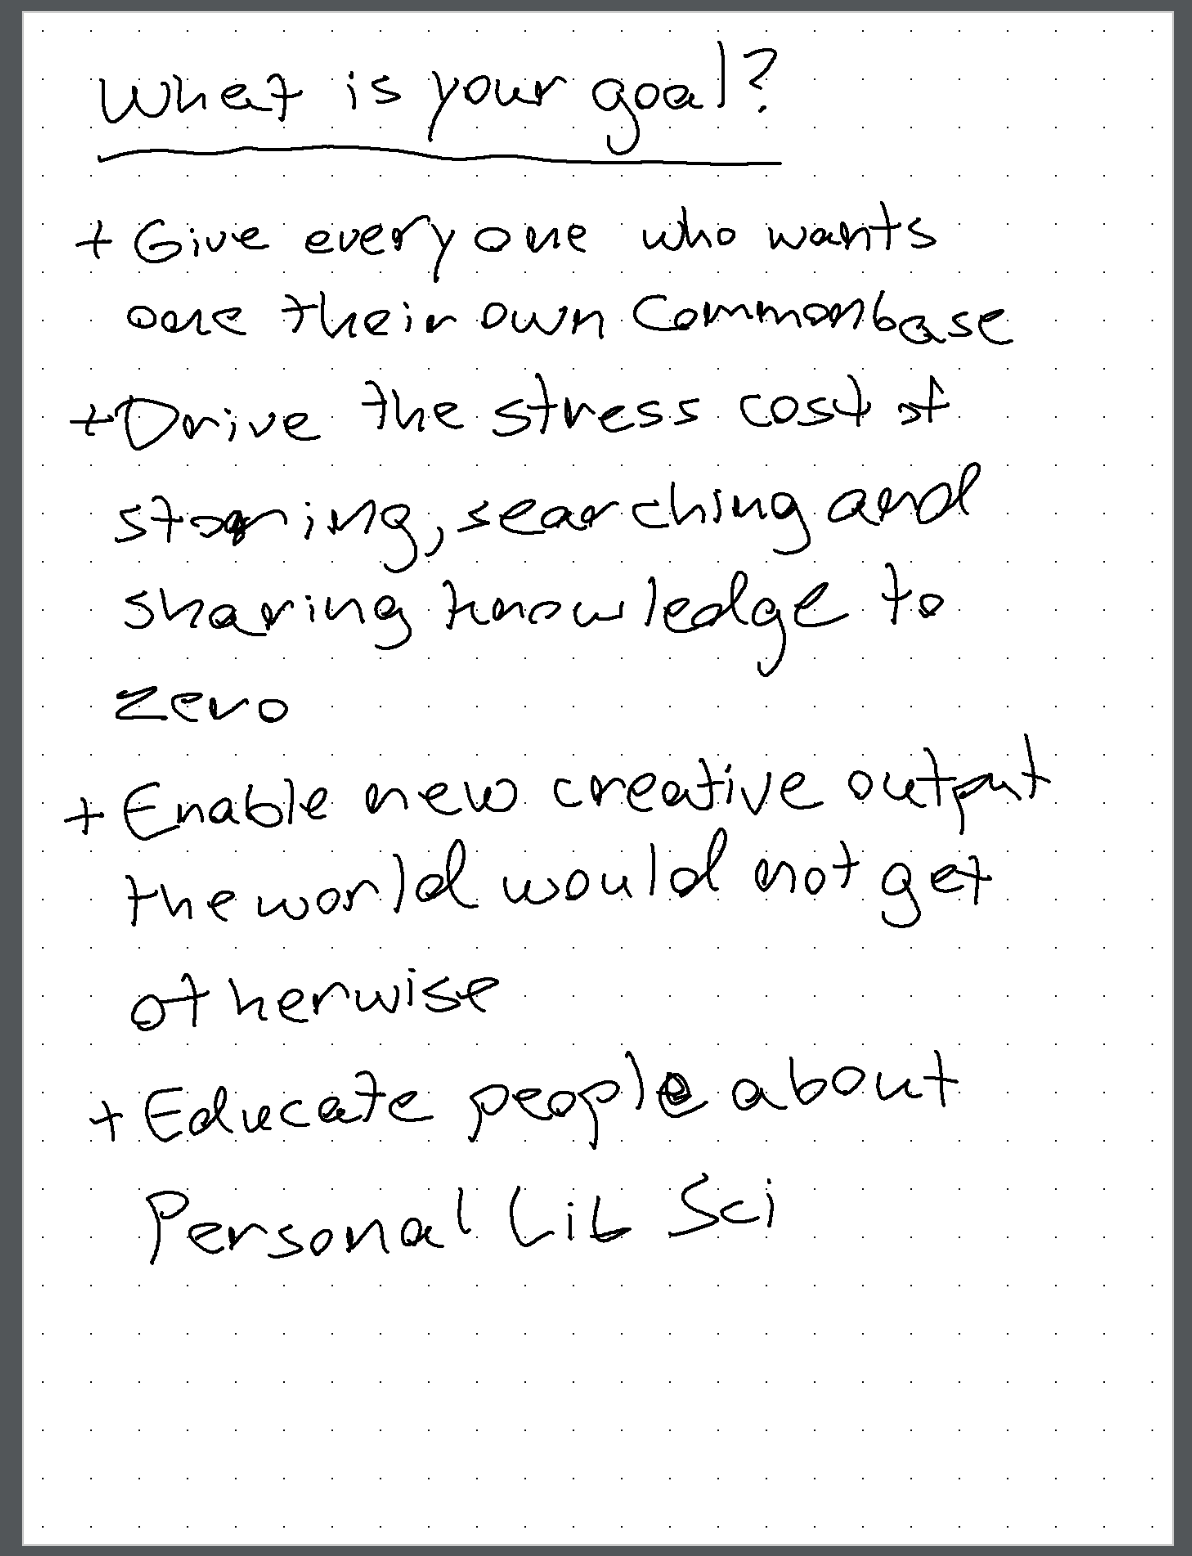 What is your goal?
+ Give everyone who wants
one their own Commonbase
+ Drive the stress cost of
storing, searching and
sharing knowledge to
zero
+ Enable new creative output
the world would not get
otherwise
+ Educate people about
Personal Lib Sci